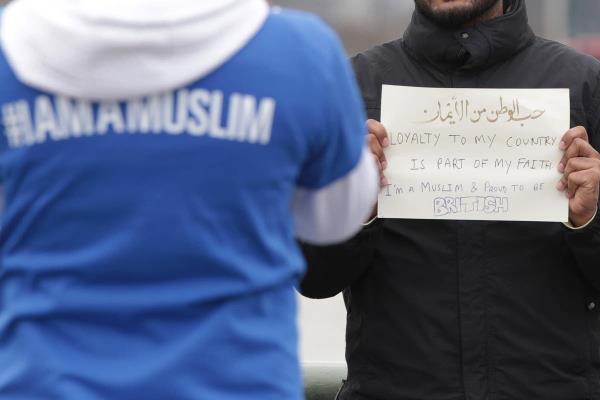 #IAMAMUSLIM
حب الوطن من الإيمان
LOYALTY TO MY COUNTRY
IS PART OF MY FAITH
I'm A MUSLIM & PROUD TO BE
BRITISH